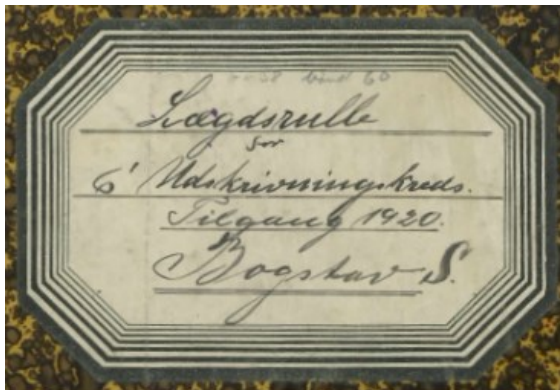 bind 60
Lægdsrulle
for
6' Udskrivningskreds.
Tilgang 1920.
Bogstav S.